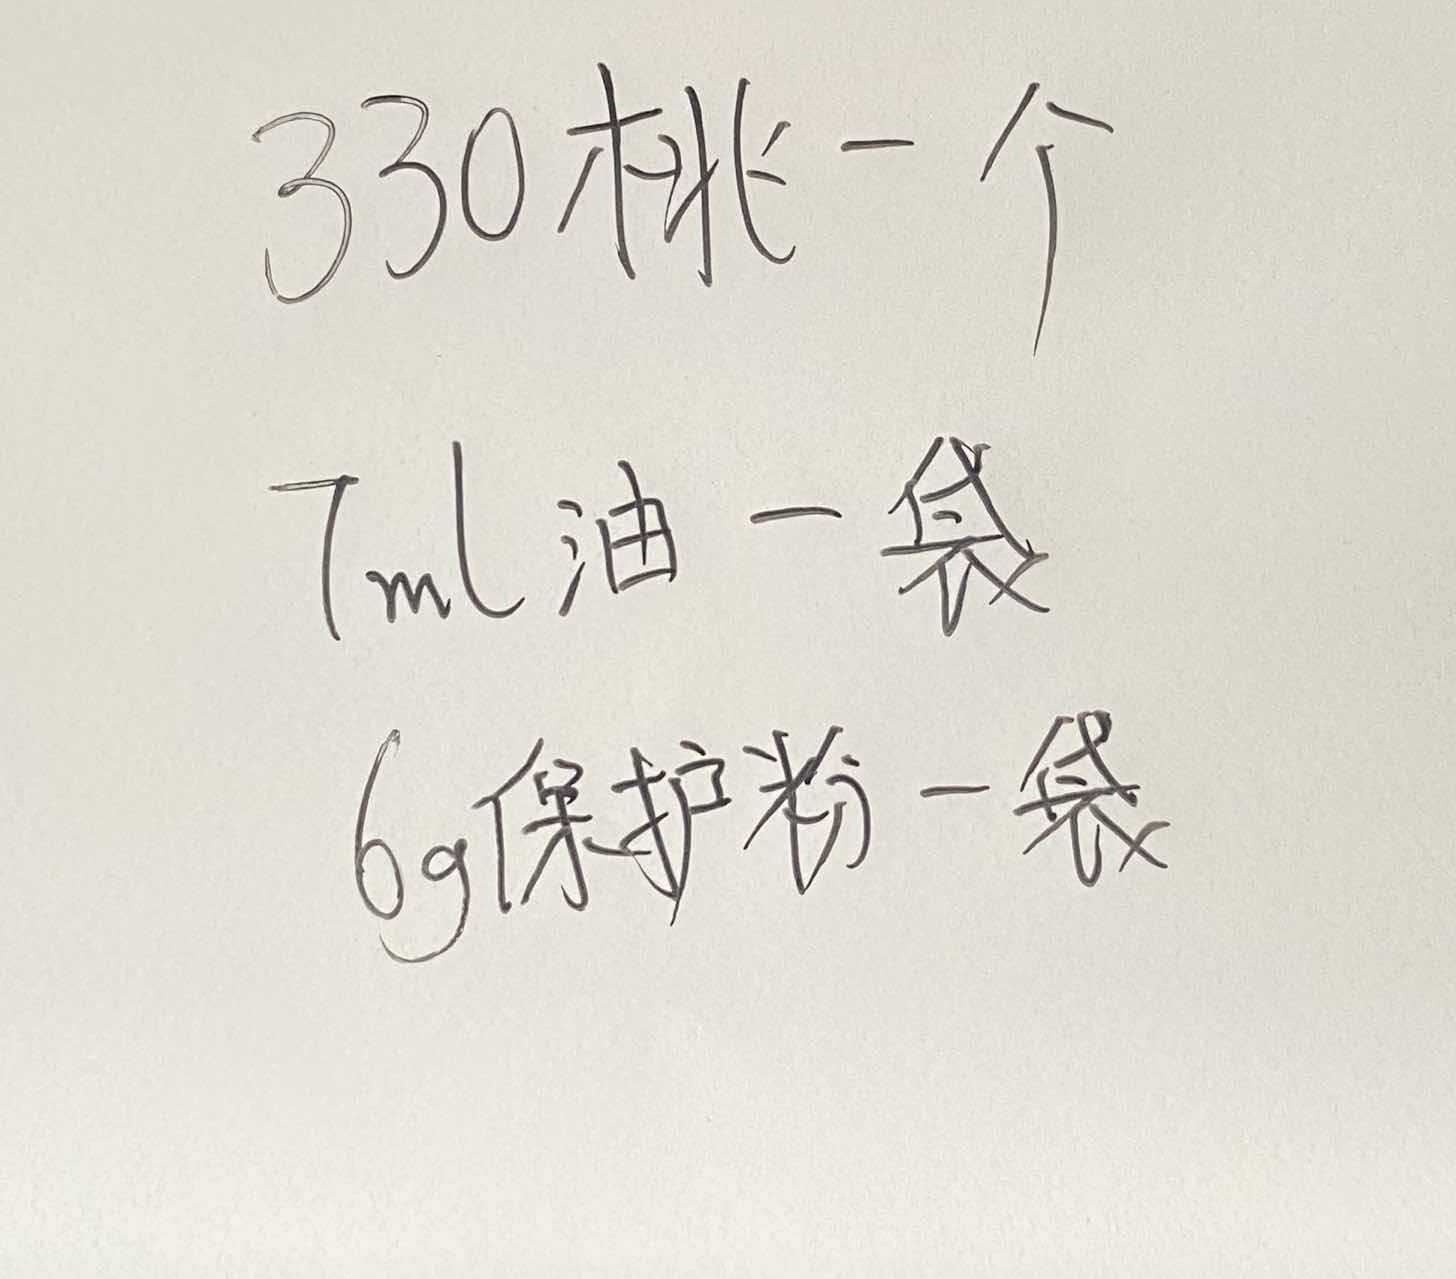 330桃一个
7ml油一袋
6g保护粉一袋